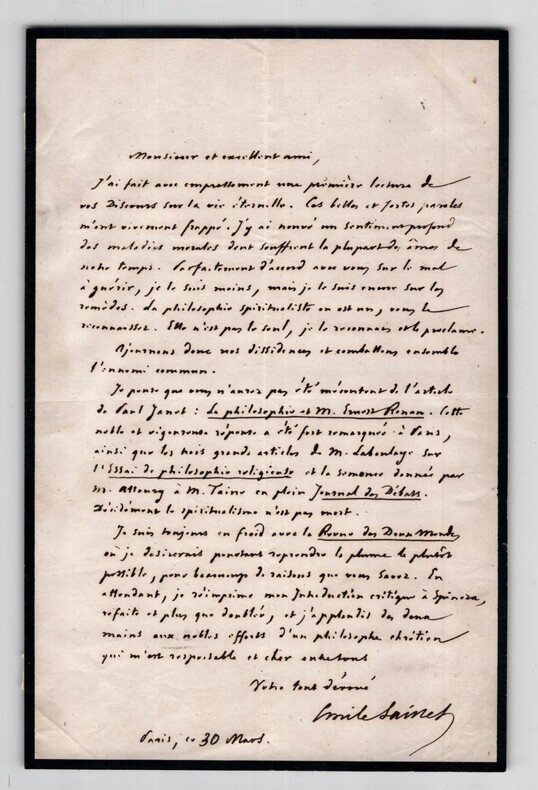 Monsieur et excellent ami,
J'ai fait avec empressement une première lecture de
vos Discours sur la vie éternelle. Ces belles et fortes paroles
m'ont vivement frappé. J'y ai trouvé un sentiment profond
des maladies morales dont souffrent la plupart des âmes de
notre temps. Parfaitement d'accord avec vous sur le mal
à guérir, je le suis moins, mais je le suis encore sur les
remèdes. La philosophie spiritualiste en est un, vous le
reconnaissez. Elle n'est pas le seul, je le reconnais et le proclame.
Ajournons donc nos dissidences et combattons ensemble
l'ennemi commun.
Je pense que vous n'aurez pas été mécontent de l'article
de Paul Janet : La philosophie et M. Ernest Renan. Cette
noble et vigoureuse réponse a été fort remarquée à Paris,
ainsi que les trois grands articles de M. Laboulaye sur
l'Essai de philosophie religieuse et la semonce donnée par
M. Alloury à M. Taine en plein Journal des Débats.
Décidément le spiritualisme n'est pas mort.
Je suis toujours en froid avec la Revue des Deux Mondes
où je desirerais pourtant reprendre la plume le plutôt
possible, pour beaucoup de raisons que vous savez. En
attendant, je réimprime mon Introduction critique à Spinoza,
refaite et plus que doublée, et j'applaudis des deux
mains aux nobles efforts d'un philosophe chrétien
qui m'est respectable et cher entre tous
Votre tout dévoué
Emile Saisset
Paris, ce 30 Mars.